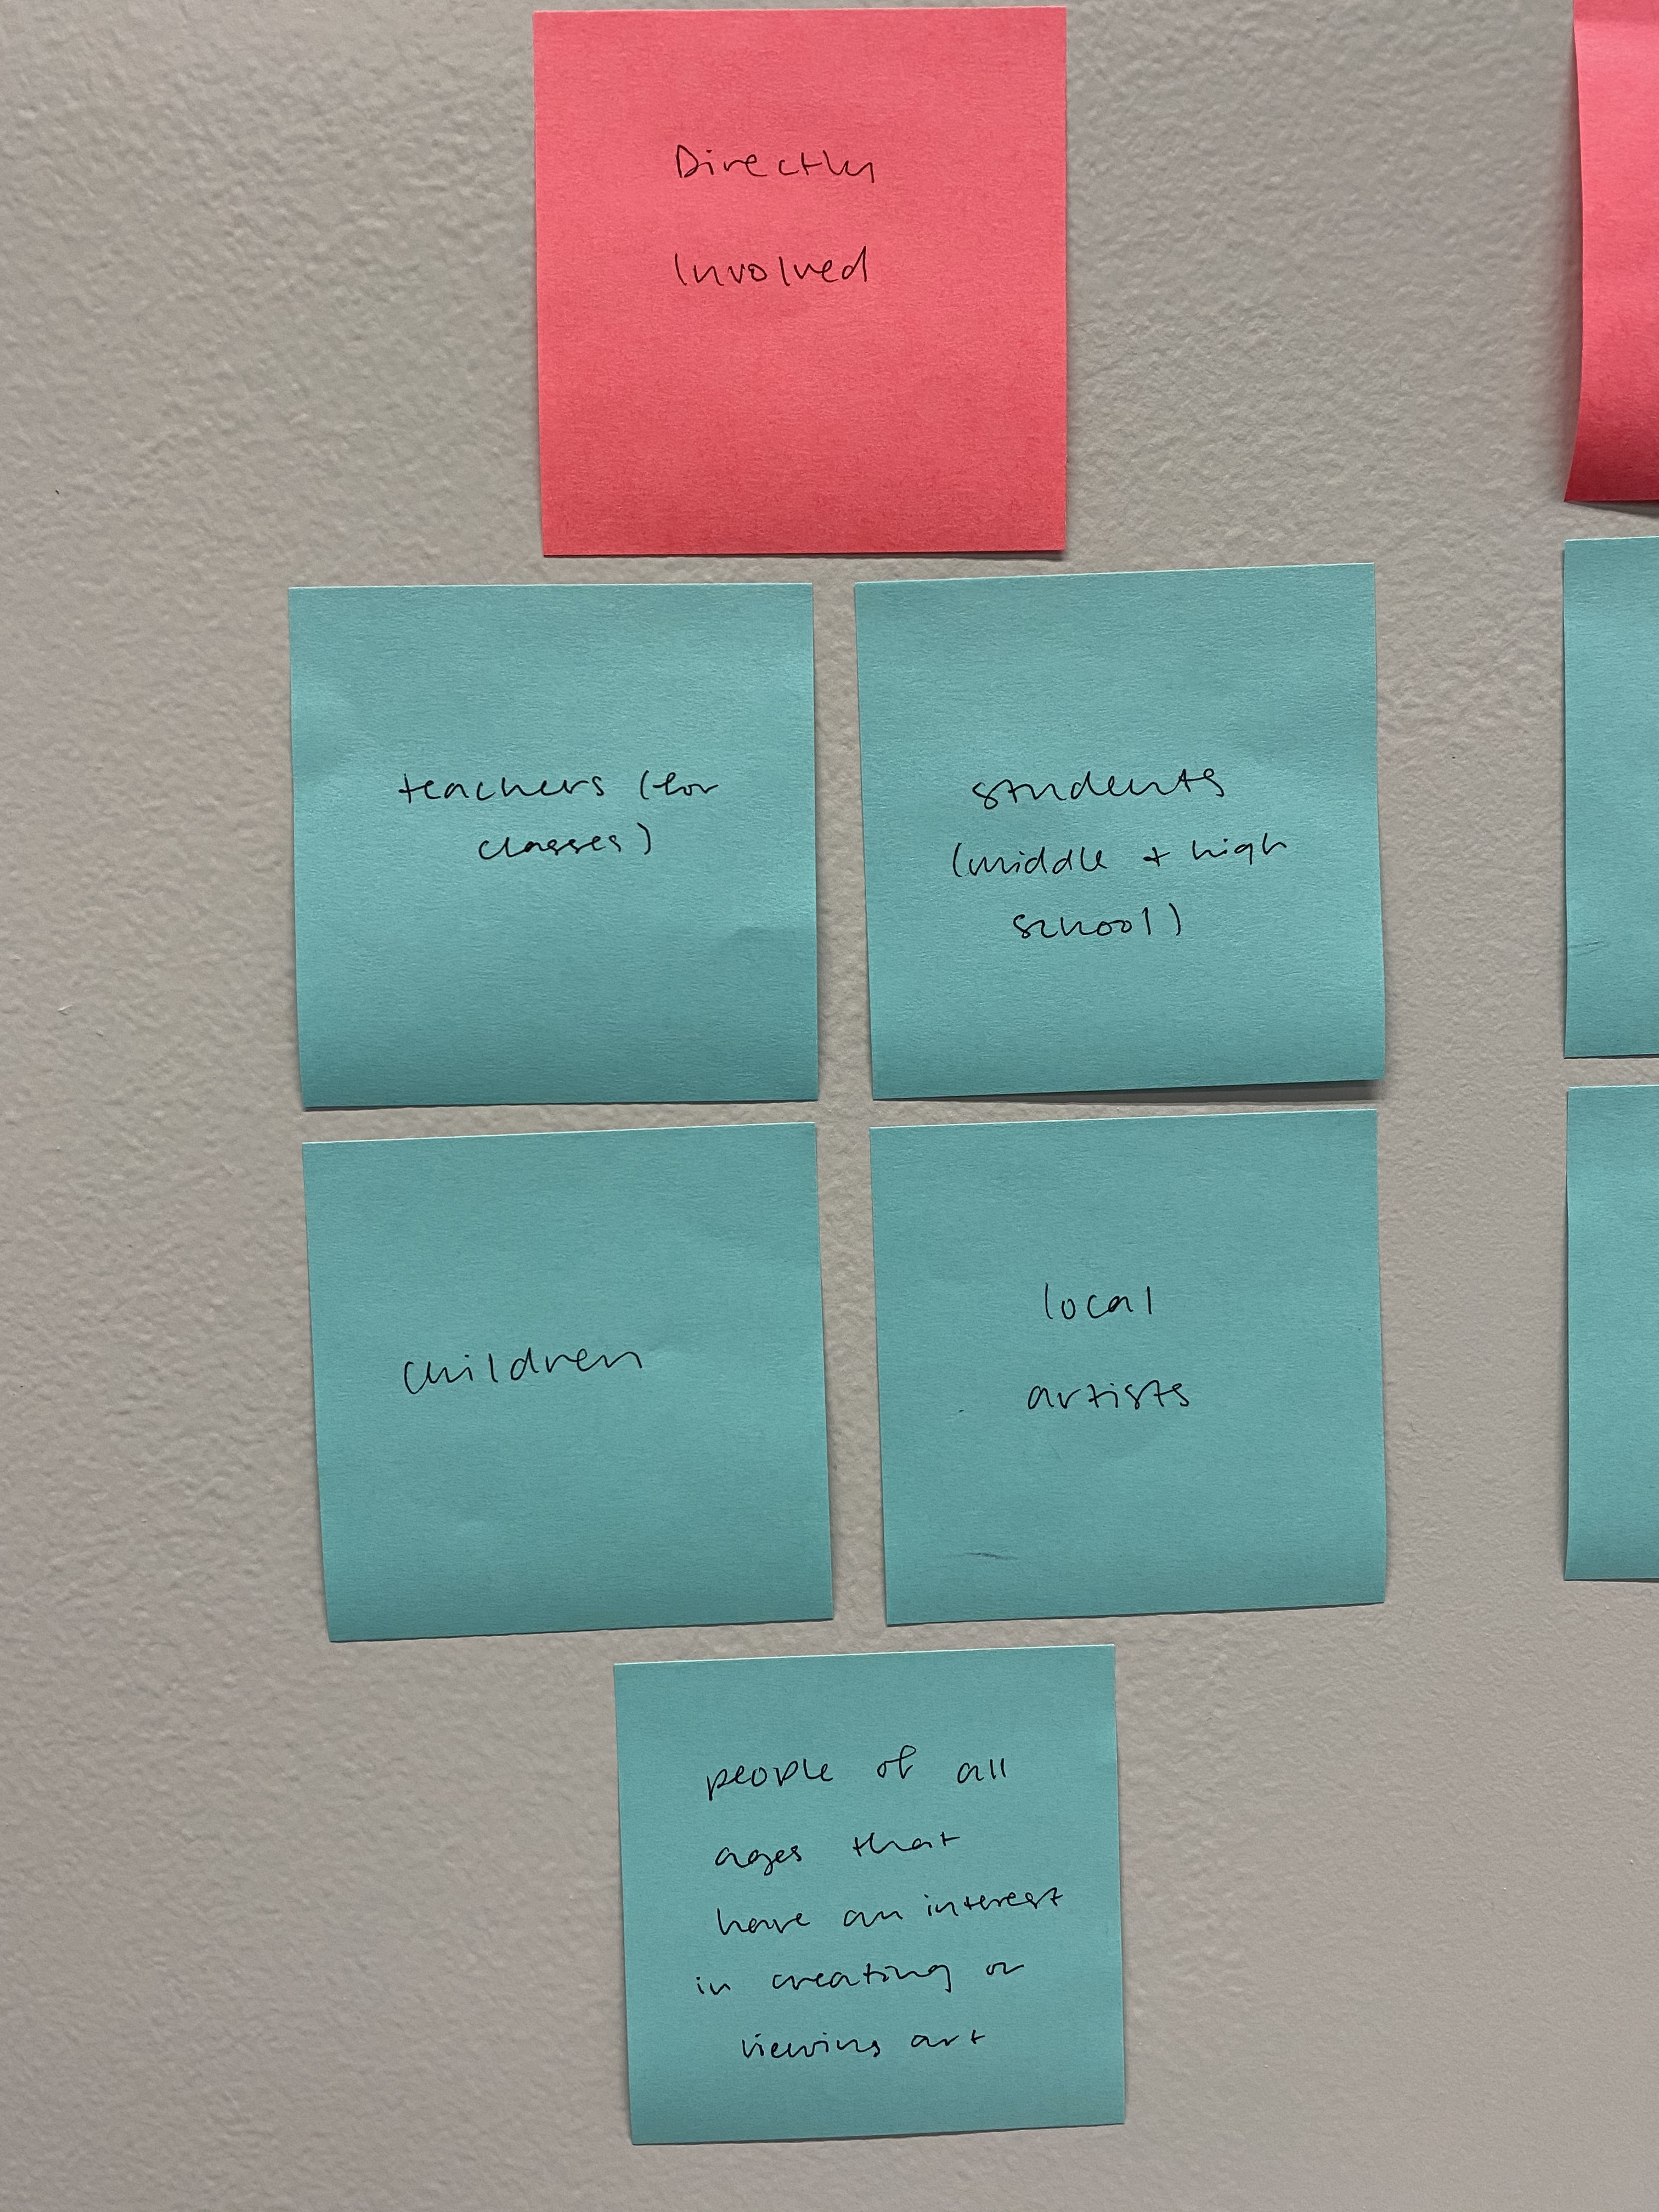 Directly
Involved
teachers (for
classes)
students
(middle + high
school)
children
local
artists
people of all
ages that
have an interest
in creating or
viewing art